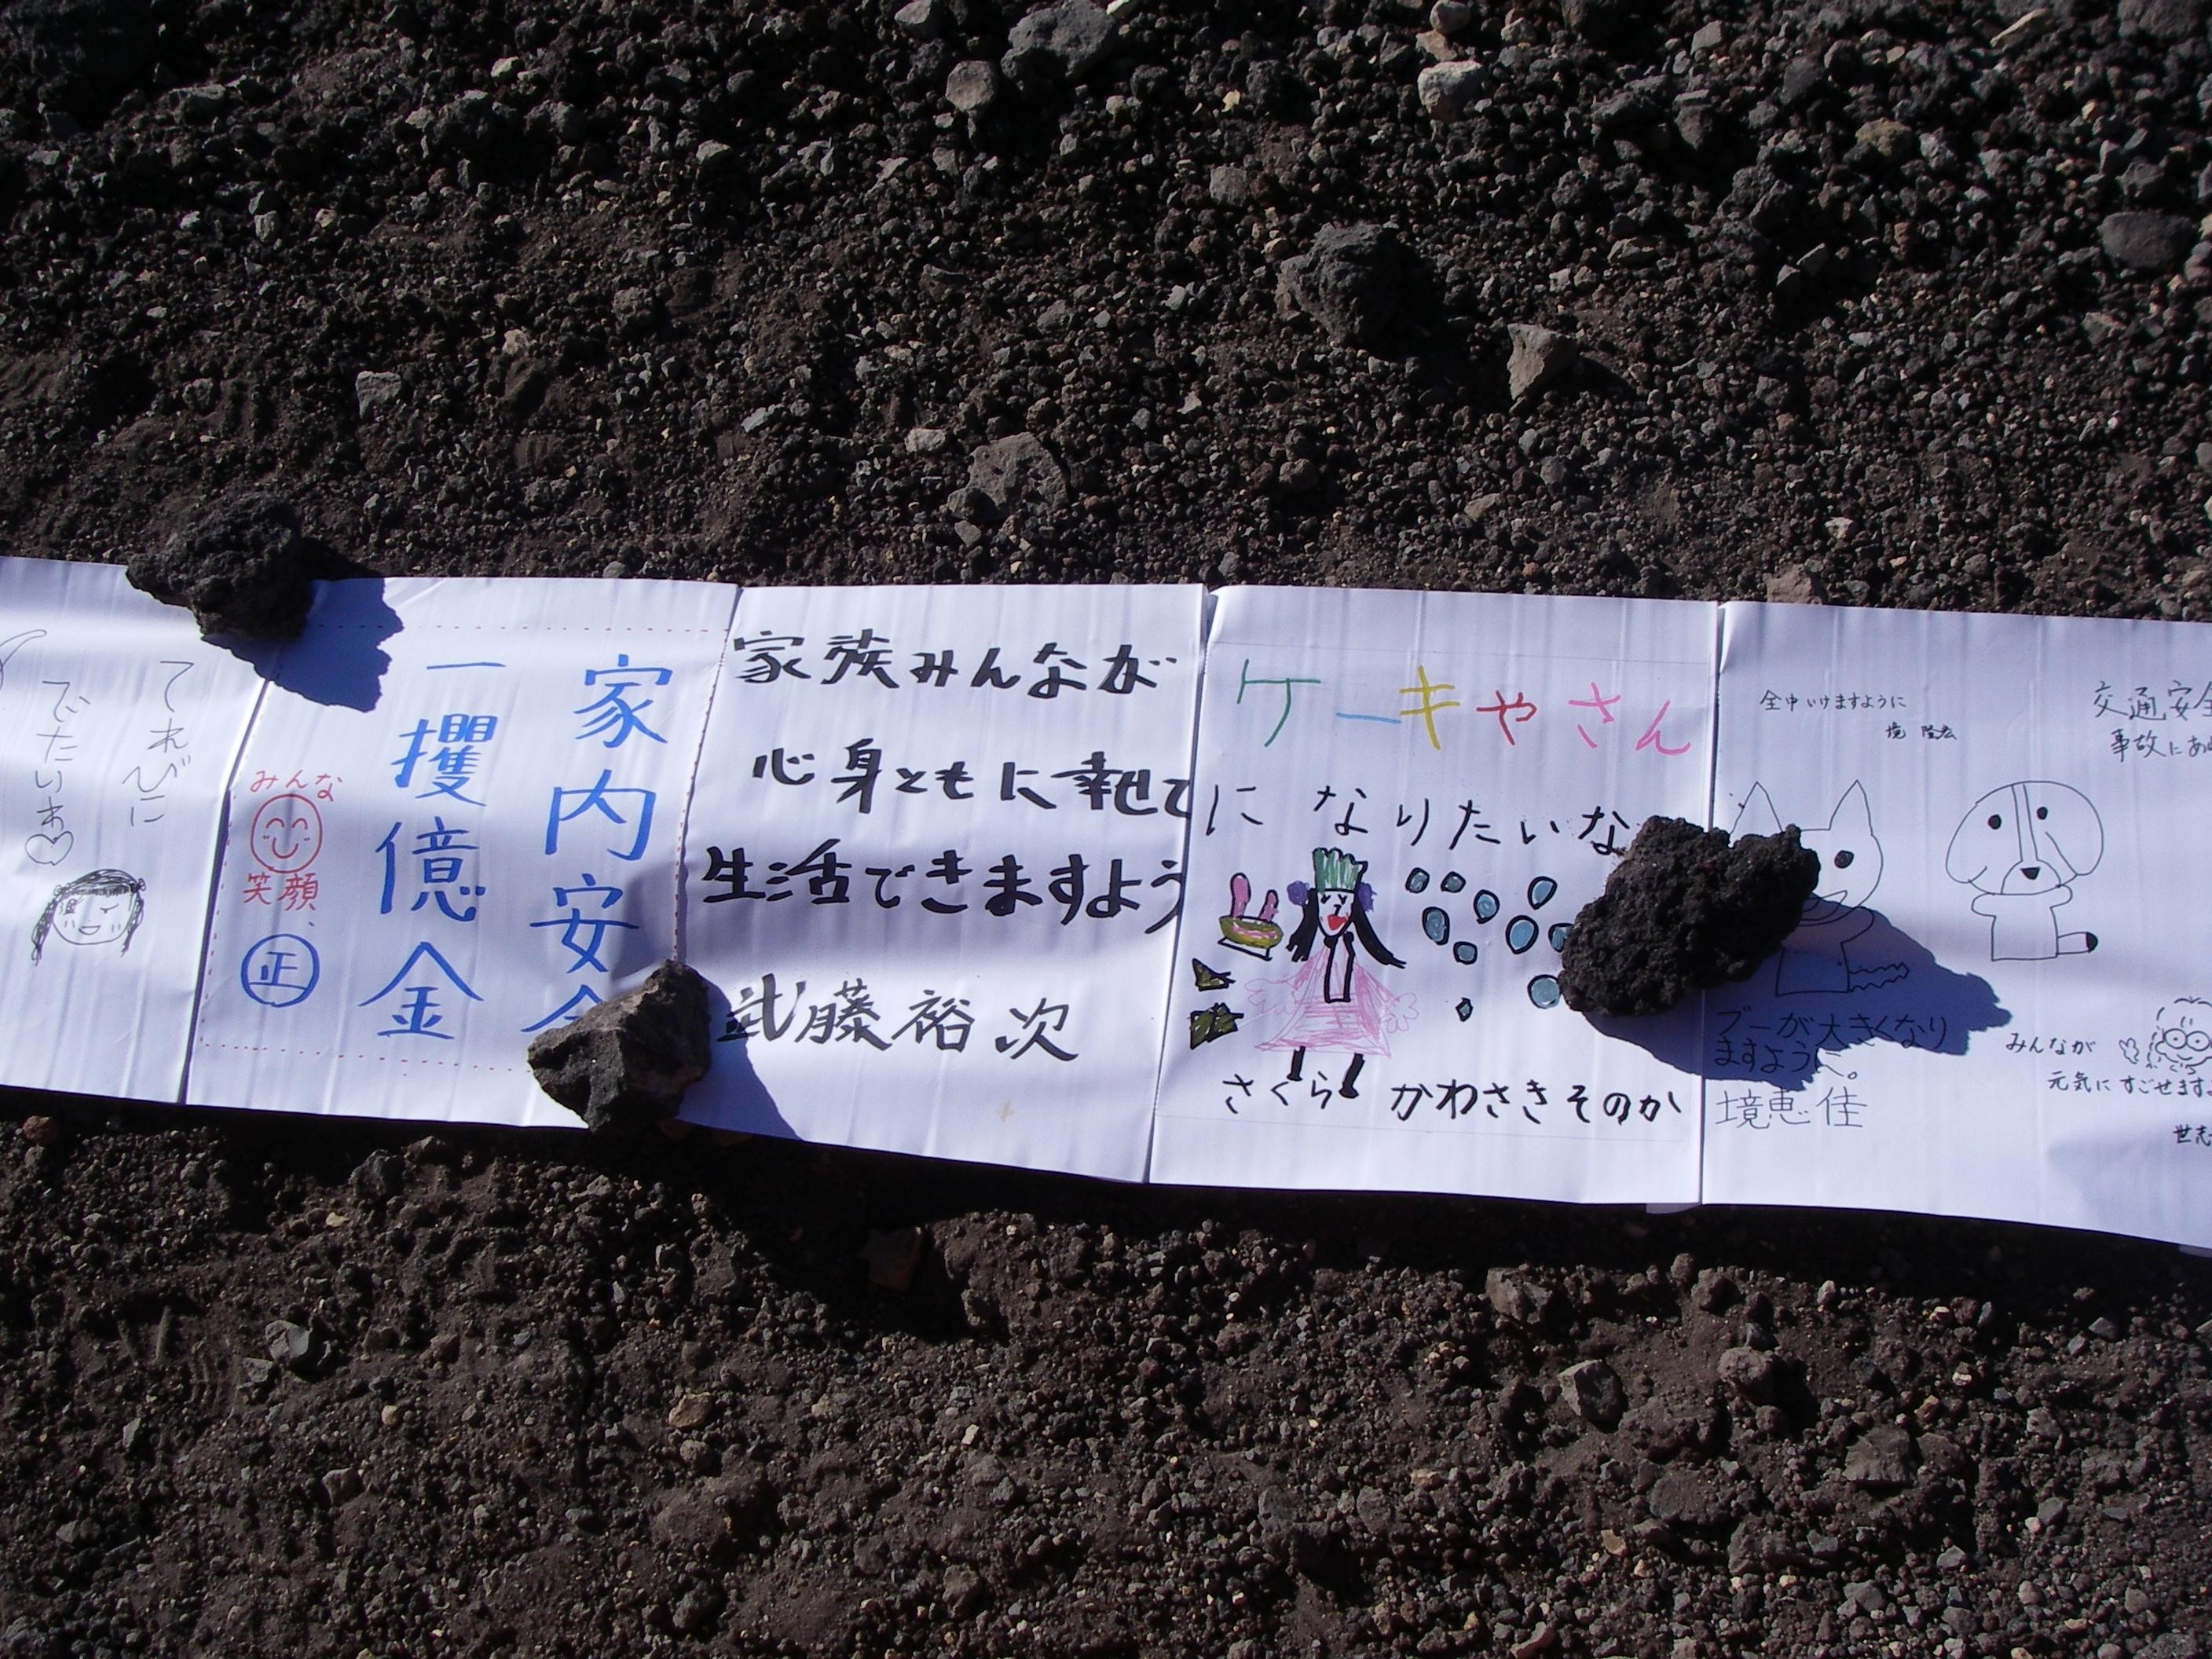 てれびに
でたいわ
家内安全
一攫億金
みんな
笑顔
正
家族みんなが
心身ともに幸せで
生活できますよう
武藤裕次
ケーキやさん
になりたいな
さくら かわさきそのか
全中いけますように
境
ブーが大きくなり
ますように。
境恵佳
交通安全
事故にあ
みんなが
元気にすごせます